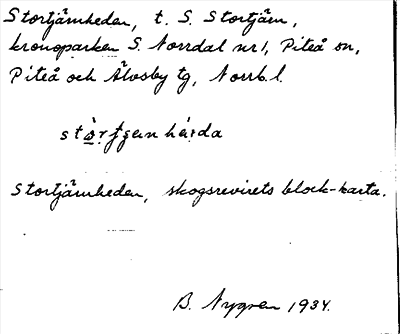 Stortjärnheden, t. S. Stortjärn,
kronoparken S. Norrdal nr 1, Piteå sn,
Piteå och Älvsby tg, Norrb. l.
Stortjärnheden, skogsrevirets block-karta.
B. Nygren 1934.